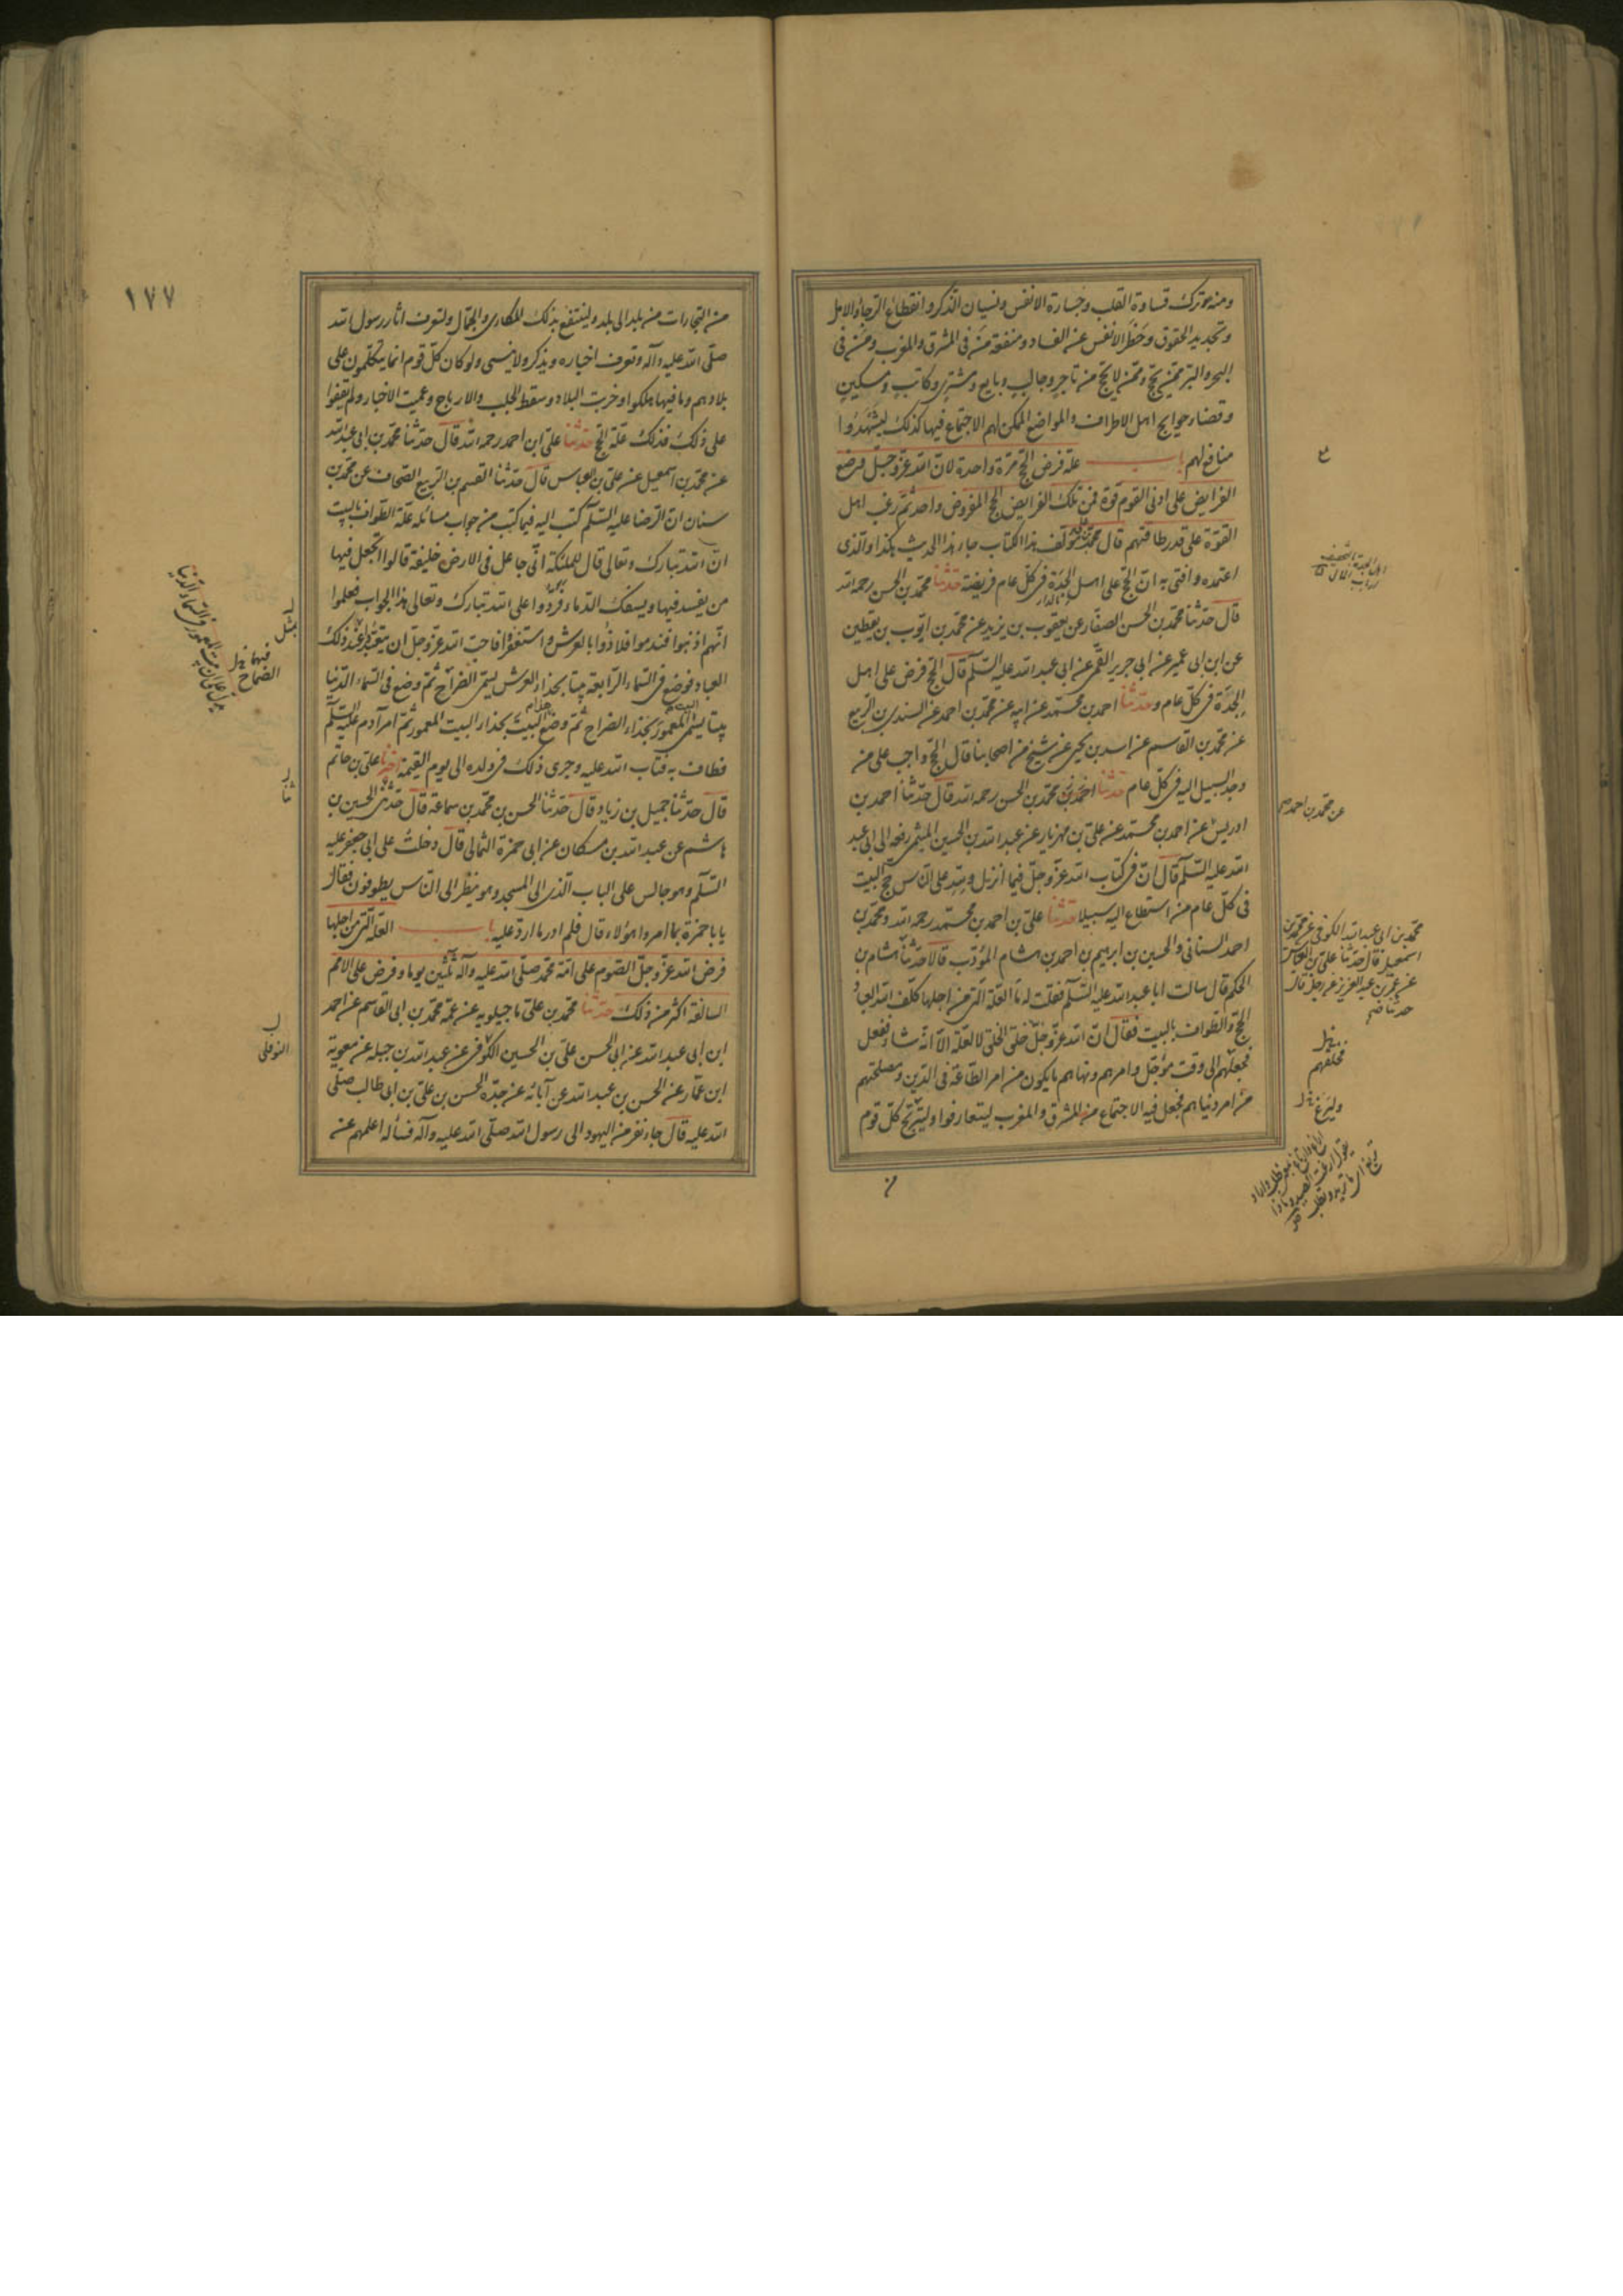 ومنه ترك قساوة القلب وخسارة الانفس ونسيان الذكر وانقطاع الرجاء والامل
وتجديد الحقوق وحظر الانفس عن الفساد ومنفعة من فى المشرق والمغرب ومن فى
البحر والبر ممن يحج وممن لا يحج من تاجر وجالب وبايع ومشترى وكاتب ومسكين
وقضاء حوايج اهل الاطراف والمواضع الممكن لهم الاجتماع فيها كذلك ليشهدوا
منافع لهم باب علة فرض الحج مرة واحدة لان الله عز وجل فرض
الفرايض على ادنى القوم قوة فمن تلك الفرايض الحج المفروض واحد ثم رغب اهل
القوة على قدر طاقتهم قال محمد بن على مؤلف هذا الكتاب جاء هذا الحديث هكذا والذى
اعتمده وافتى به ان الحج على اهل الجدة فى كل عام فريضة حدثنا محمد بن الحسن رحمه الله
قال حدثنا محمد بن الحسن الصفار عن يعقوب بن يزيد عن محمد بن ايوب بن يقطين
عن ابن ابى عمير عن ابى جرير القمى عن ابى عبد الله عليه السلم قال الحج فرض على اهل
الجدة فى كل عام و حدثنا احمد بن محمد عن ابيه عن محمد بن احمد عن السندى بن الربيع
عن محمد بن القاسم عن اسد بن يحيى عن شيخ من اصحابنا قال الحج واجب على من
وجد السبيل اليه فى كل عام حدثنا احمد بن محمد بن الحسن رحمه الله قال حدثنا احمد بن
ادريس عن احمد بن محمد عن على بن مهزيار عن عبد الله بن الحسين الميثمى رفعه الى ابى عبد
الله عليه السلم قال ان فى كتاب الله عز وجل فيما انزل ولله على الناس حج البيت
فى كل عام من استطاع اليه سبيلا حدثنا على بن احمد بن محمد رحمه الله ومحمد بن
احمد السنانى والحسين بن ابرهيم بن احمد بن هشام المؤدب قالا حدثنا هشام بن
الحكم قال سالت ابا عبد الله عليه السلم فقلت له ما العلة التى من اجلها كلف الله العباد
الحج والطواف بالبيت فقال ان الله عز وجل خلق الخلق لا لعلة الا انه شاء ففعل
فجعلهم الى وقت مؤجل وامرهم ونهاهم ما يكون من امر الطاعة فى الدين ومصلحتهم
من امر دنياهم فجعل فيه الاجتماع من المشرق والمغرب ليتعارفوا وليتربح كل قوم
من
عن محمد بن احمد
محمد بن ابى عبد الله الكوفى عن محمد بن
اسمعيل قال حدثنا على بن العباس
عن عمر بن عبد العزيز عن رجل قال
حدثنا
فخلقهم
١٧٧
من التجارات من بلد الى بلد ولينتفع بذلك المكارى والجمال ولتعرف اثار رسول الله
صلى الله عليه وآله وتعرف اخباره ويذكر ولا ينسى ولو كان كل قوم انما يتكلمون على
بلادهم وما فيها هلكوا وخربت البلاد وسقط الجلب والارباح وعميت الاخبار ولم يقفوا
على ذلك فذلك علة الحج حدثنا على ابن احمد رحمه الله قال حدثنا محمد بن ابى عبد الله
عن محمد بن اسمعيل عن على بن العباس قال حدثنا القسم بن الربيع الصحاف عن محمد بن
سنان ان الرضا عليه السلم كتب اليه فيما كتب من جواب مسائله علة الطواف بالبيت
ان الله تبارك وتعالى قال للملئكة انى جاعل فى الارض خليفة قالوا اتجعل فيها
من يفسد فيها ويسفك الدماء فردوا على الله تبارك وتعالى هذا الجواب فعلموا
انهم اذنبوا فندموا فلاذوا بالعرش واستغفروا فاحب الله عز وجل ان يتعبد بمثل ذلك
العباد فوضع فى السماء الرابعة بيتا بحذاء العرش يسمى الضراح ثم وضع فى السماء الدنيا
بيتا يسمى المعمور بحذاء الضراح ثم وضع البيت بحذاء البيت المعمور ثم امر آدم عليه السلم
فطاف به فتاب الله عليه وجرى ذلك فى ولده الى يوم القيمة اخبرنا على بن حاتم
قال حدثنا جميل بن زياد قال حدثنا الحسن بن محمد بن سماعة قال حدثنى الحسين بن
هاشم عن عبد الله بن مسكان عن ابى حمزة الثمالى قال دخلت على ابى جعفر عليه
السلم وهو جالس على الباب الذى الى المسجد وهو ينظر الى الناس يطوفون فقال
يا با حمزة بما امروا هؤلاء قال فلم ادر ما ارد عليه باب العلة التى من اجلها
فرض الله عز وجل الصوم على امة محمد صلى الله عليه وآله ثلثين يوما وفرض على الامم
السالفة اكثر من ذلك حدثنا محمد بن على ماجيلويه عن عمه محمد بن ابى القاسم عن احمد
ابن ابى عبد الله عن ابى الحسن على بن الحسين الكوفى عن عبد الله بن جبله عن معوية
ابن عمار عن الحسن بن عبد الله عن آبائه عن جده الحسن بن على بن ابى طالب صلى
الله عليه قال جاء نفر من اليهود الى رسول الله صلى الله عليه وآله فسأله اعلمهم عن
بمثل
فيها
النوفلى